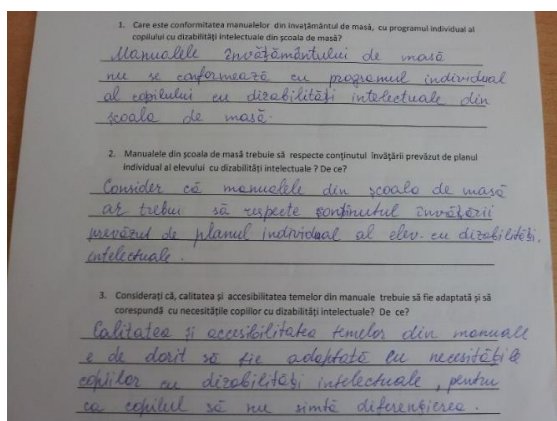 1. Care este conformitatea manualelor din invațământul de masă, cu programul individual al
copilului cu dizabilități intelectuale din școala de masă?
Manualele învățământului de masă
nu se conformează cu programul individual
al copilului cu dizabilități intelectuale din
școala de masă.
2. Manualele din școala de masă trebuie să respecte conținutul învățării prevăzut de planul
individual al elevului cu dizabilități intelectuale ? De ce?
Consider că manualele din școala de masă
ar trebui să respecte conținutul învățării
prevăzut de planul individual al elev. cu dizabilități
intelectuale.
3. Considerați că, calitatea și accesibilitatea temelor din manuale trebuie să fie adaptată și să
corespundă cu necesitățile copiilor cu dizabilități intelectuale? De ce?
Calitatea și accesibilitatea temelor din manuale
e de dorit să fie adaptată cu necesități
copiilor cu dizabilități intelectuale, pentru
ca copilul să nu simtă diferențierea.